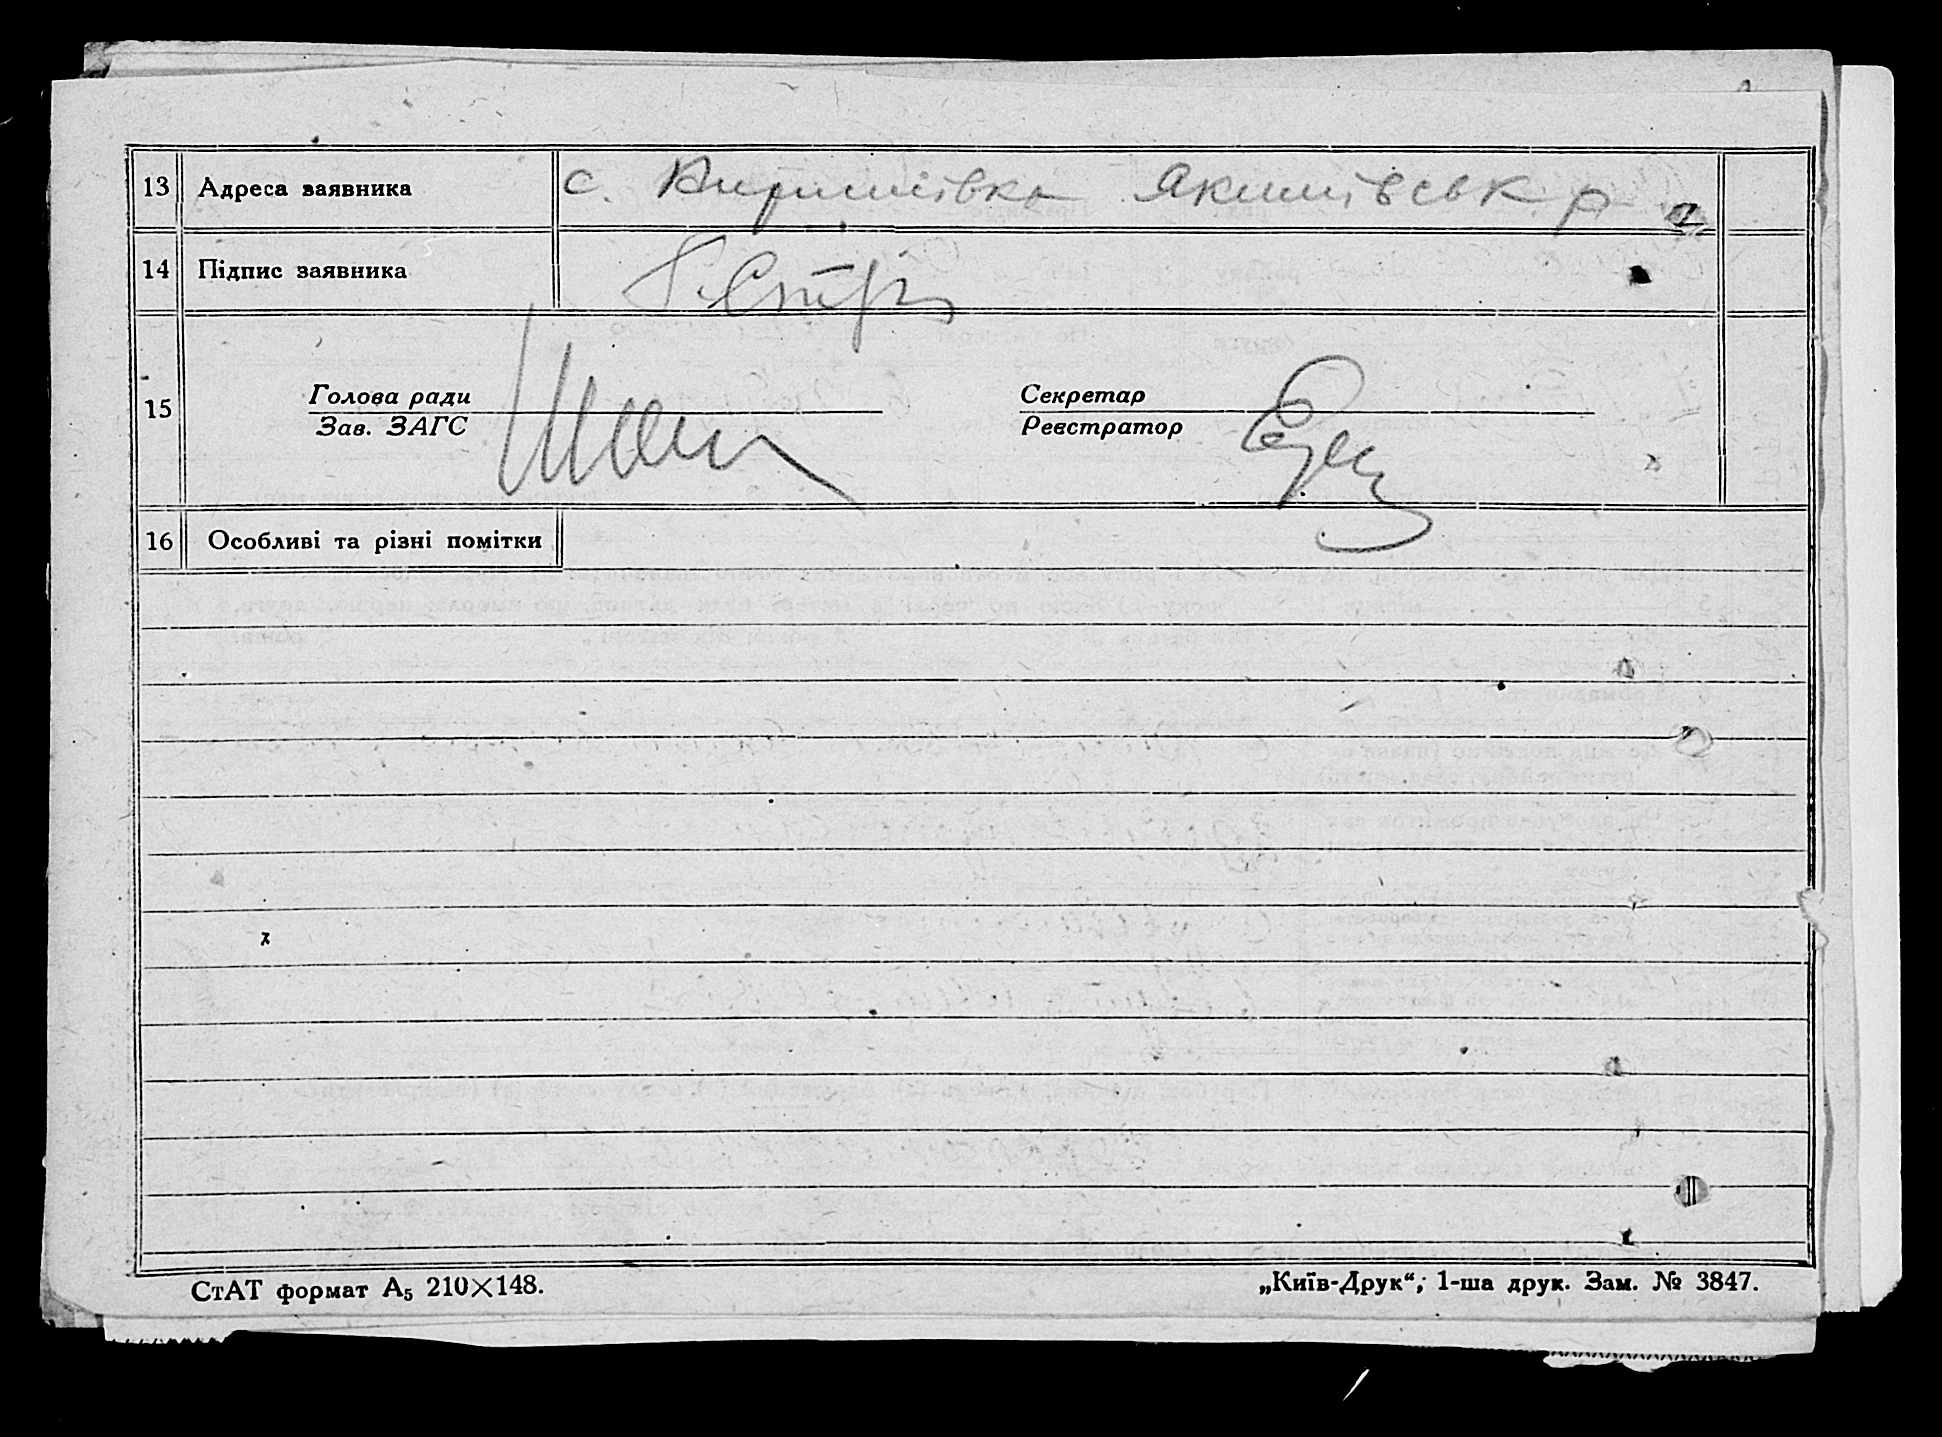 13 Адреса заявника с. Кирилівка Якимівськ р
14 Підпис заявника
15 Голова ради Секретар
Зав. ЗАГС Реєстратор
16 Особливі та різні помітки
СтАТ формат А₅ 210×148. „Київ-Друк“, 1-ша друк. Зам. № 3847.